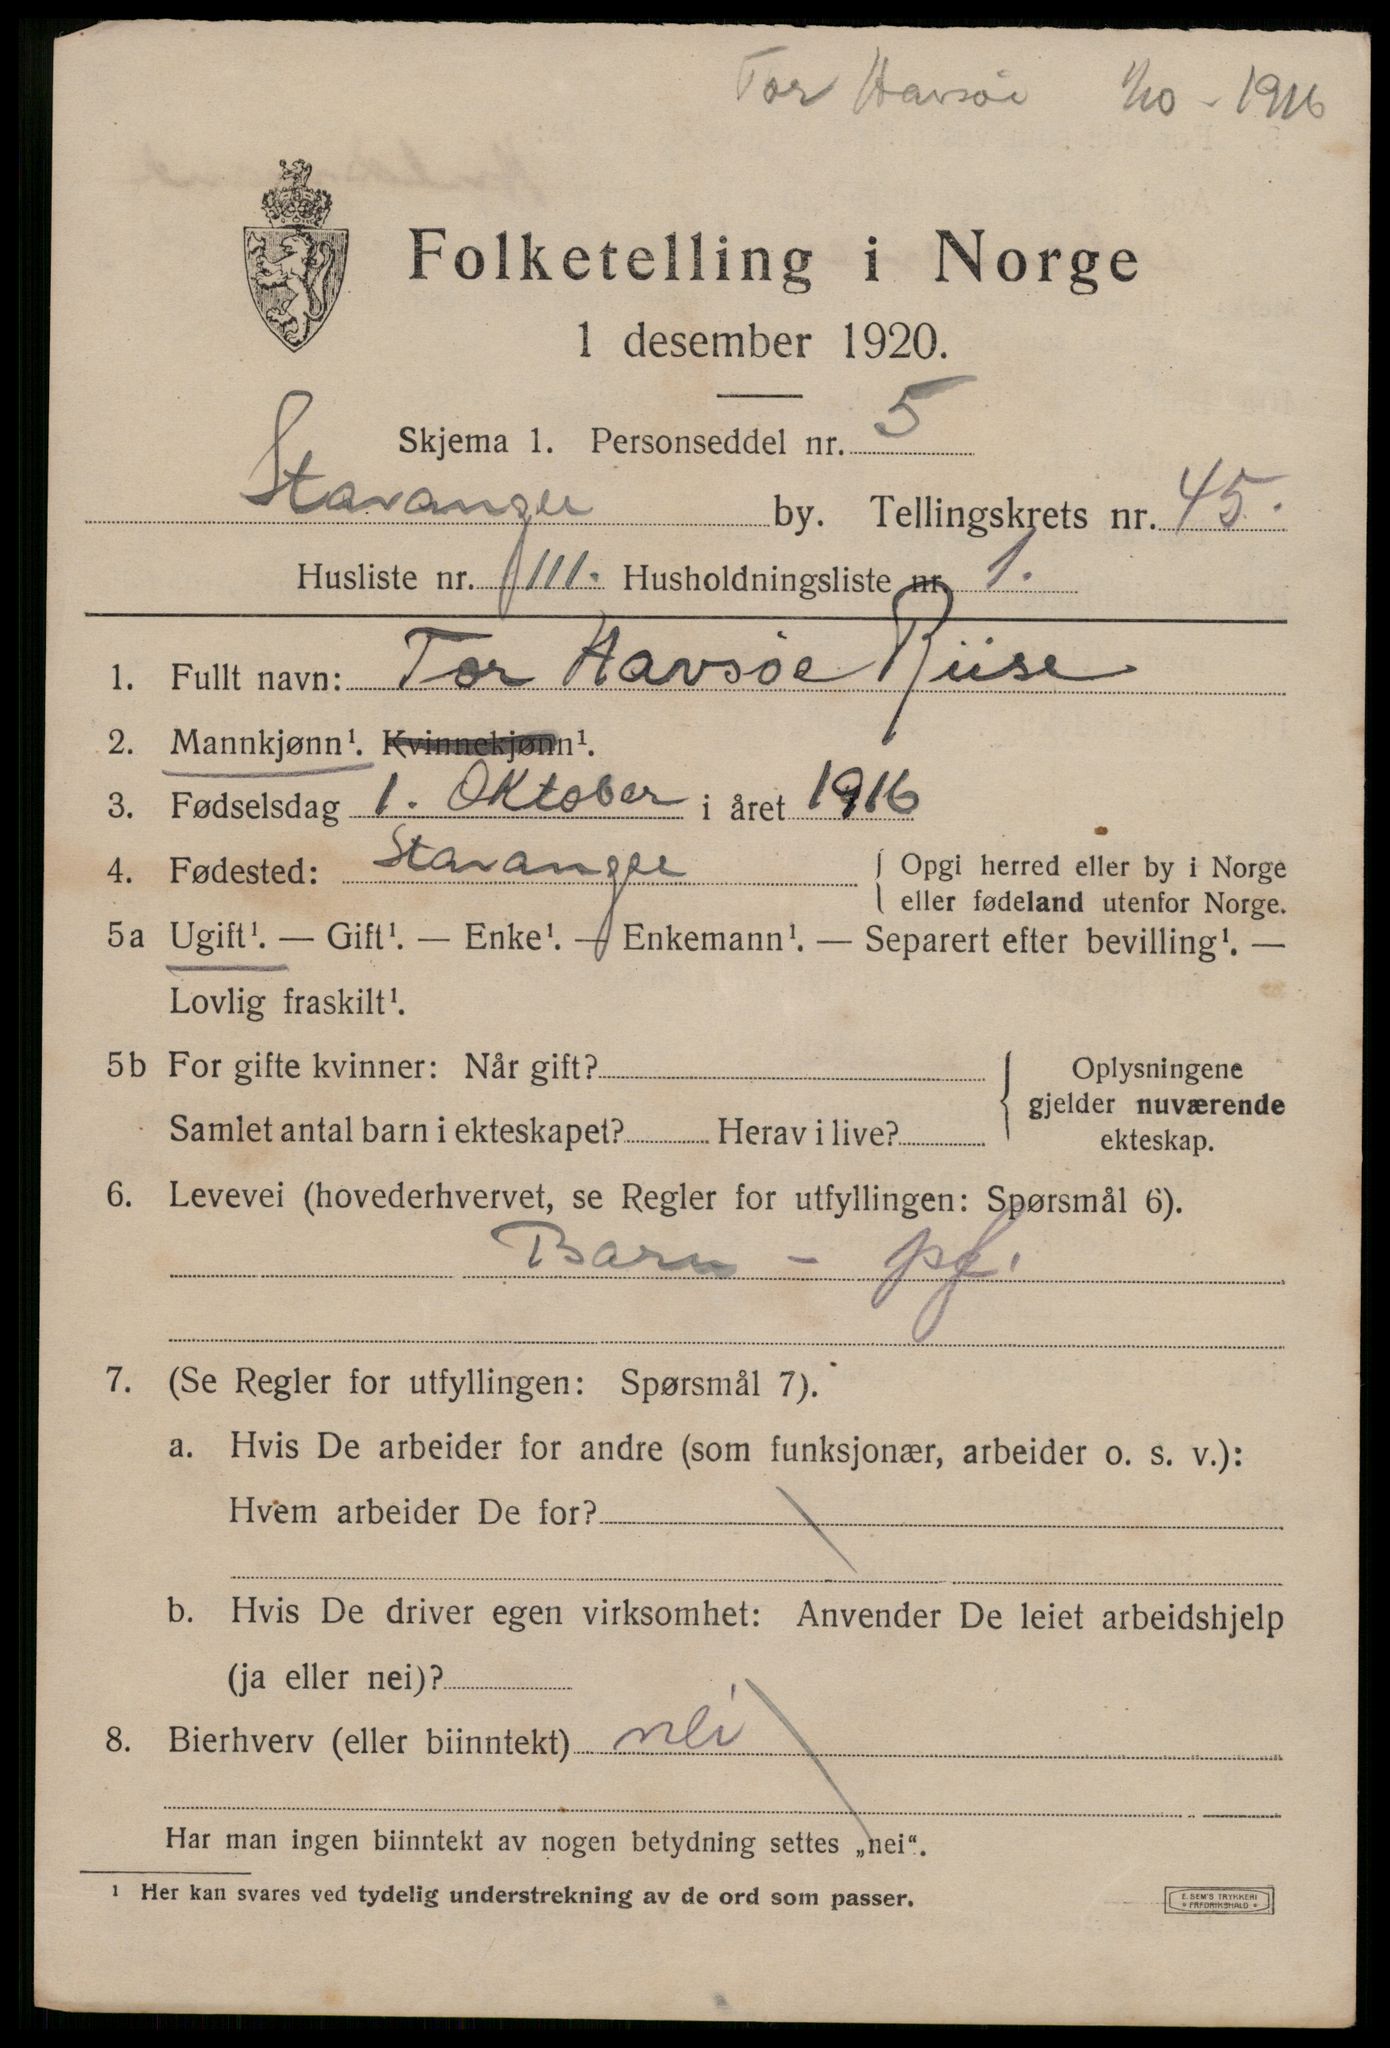 Tor Havsøe 1/10 - 1916
Folketelling i Norge
1 desember 1920.
Skjema 1. Personseddel nr. 5
Stavanger by. Tellingskrets nr. 45.
Husliste nr. 111. Husholdningsliste nr. 1.
1. Fullt navn: Tor Havsøe Riise
2. Mannkjønn¹. Kvinnekjønn¹.
3. Fødselsdag 1. Oktober i året 1916
4. Fødested: Stavanger { Opgi herred eller by i Norge
eller fødeland utenfor Norge.
5a Ugift¹. — Gift¹. — Enke¹. — Enkemann¹. — Separert efter bevilling¹. —
Lovlig fraskilt¹.
5b For gifte kvinner: Når gift? { Oplysningene
gjelder nuværende
Samlet antal barn i ekteskapet? Herav i live? ekteskap.
6. Levevei (hovederhvervet, se Regler for utfyllingen: Spørsmål 6).
Barn - pf.
7. (Se Regler for utfyllingen: Spørsmål 7).
a. Hvis De arbeider for andre (som funksjonær, arbeider o. s. v.):
Hvem arbeider De for?
b. Hvis De driver egen virksomhet: Anvender De leiet arbeidshjelp
(ja eller nei)?
8. Bierhverv (eller biinntekt) nei
Har man ingen biinntekt av nogen betydning settes „nei“.
¹ Her kan svares ved tydelig understrekning av de ord som passer.
E. SEM'S TRYKKERI
FREDRIKSHALD